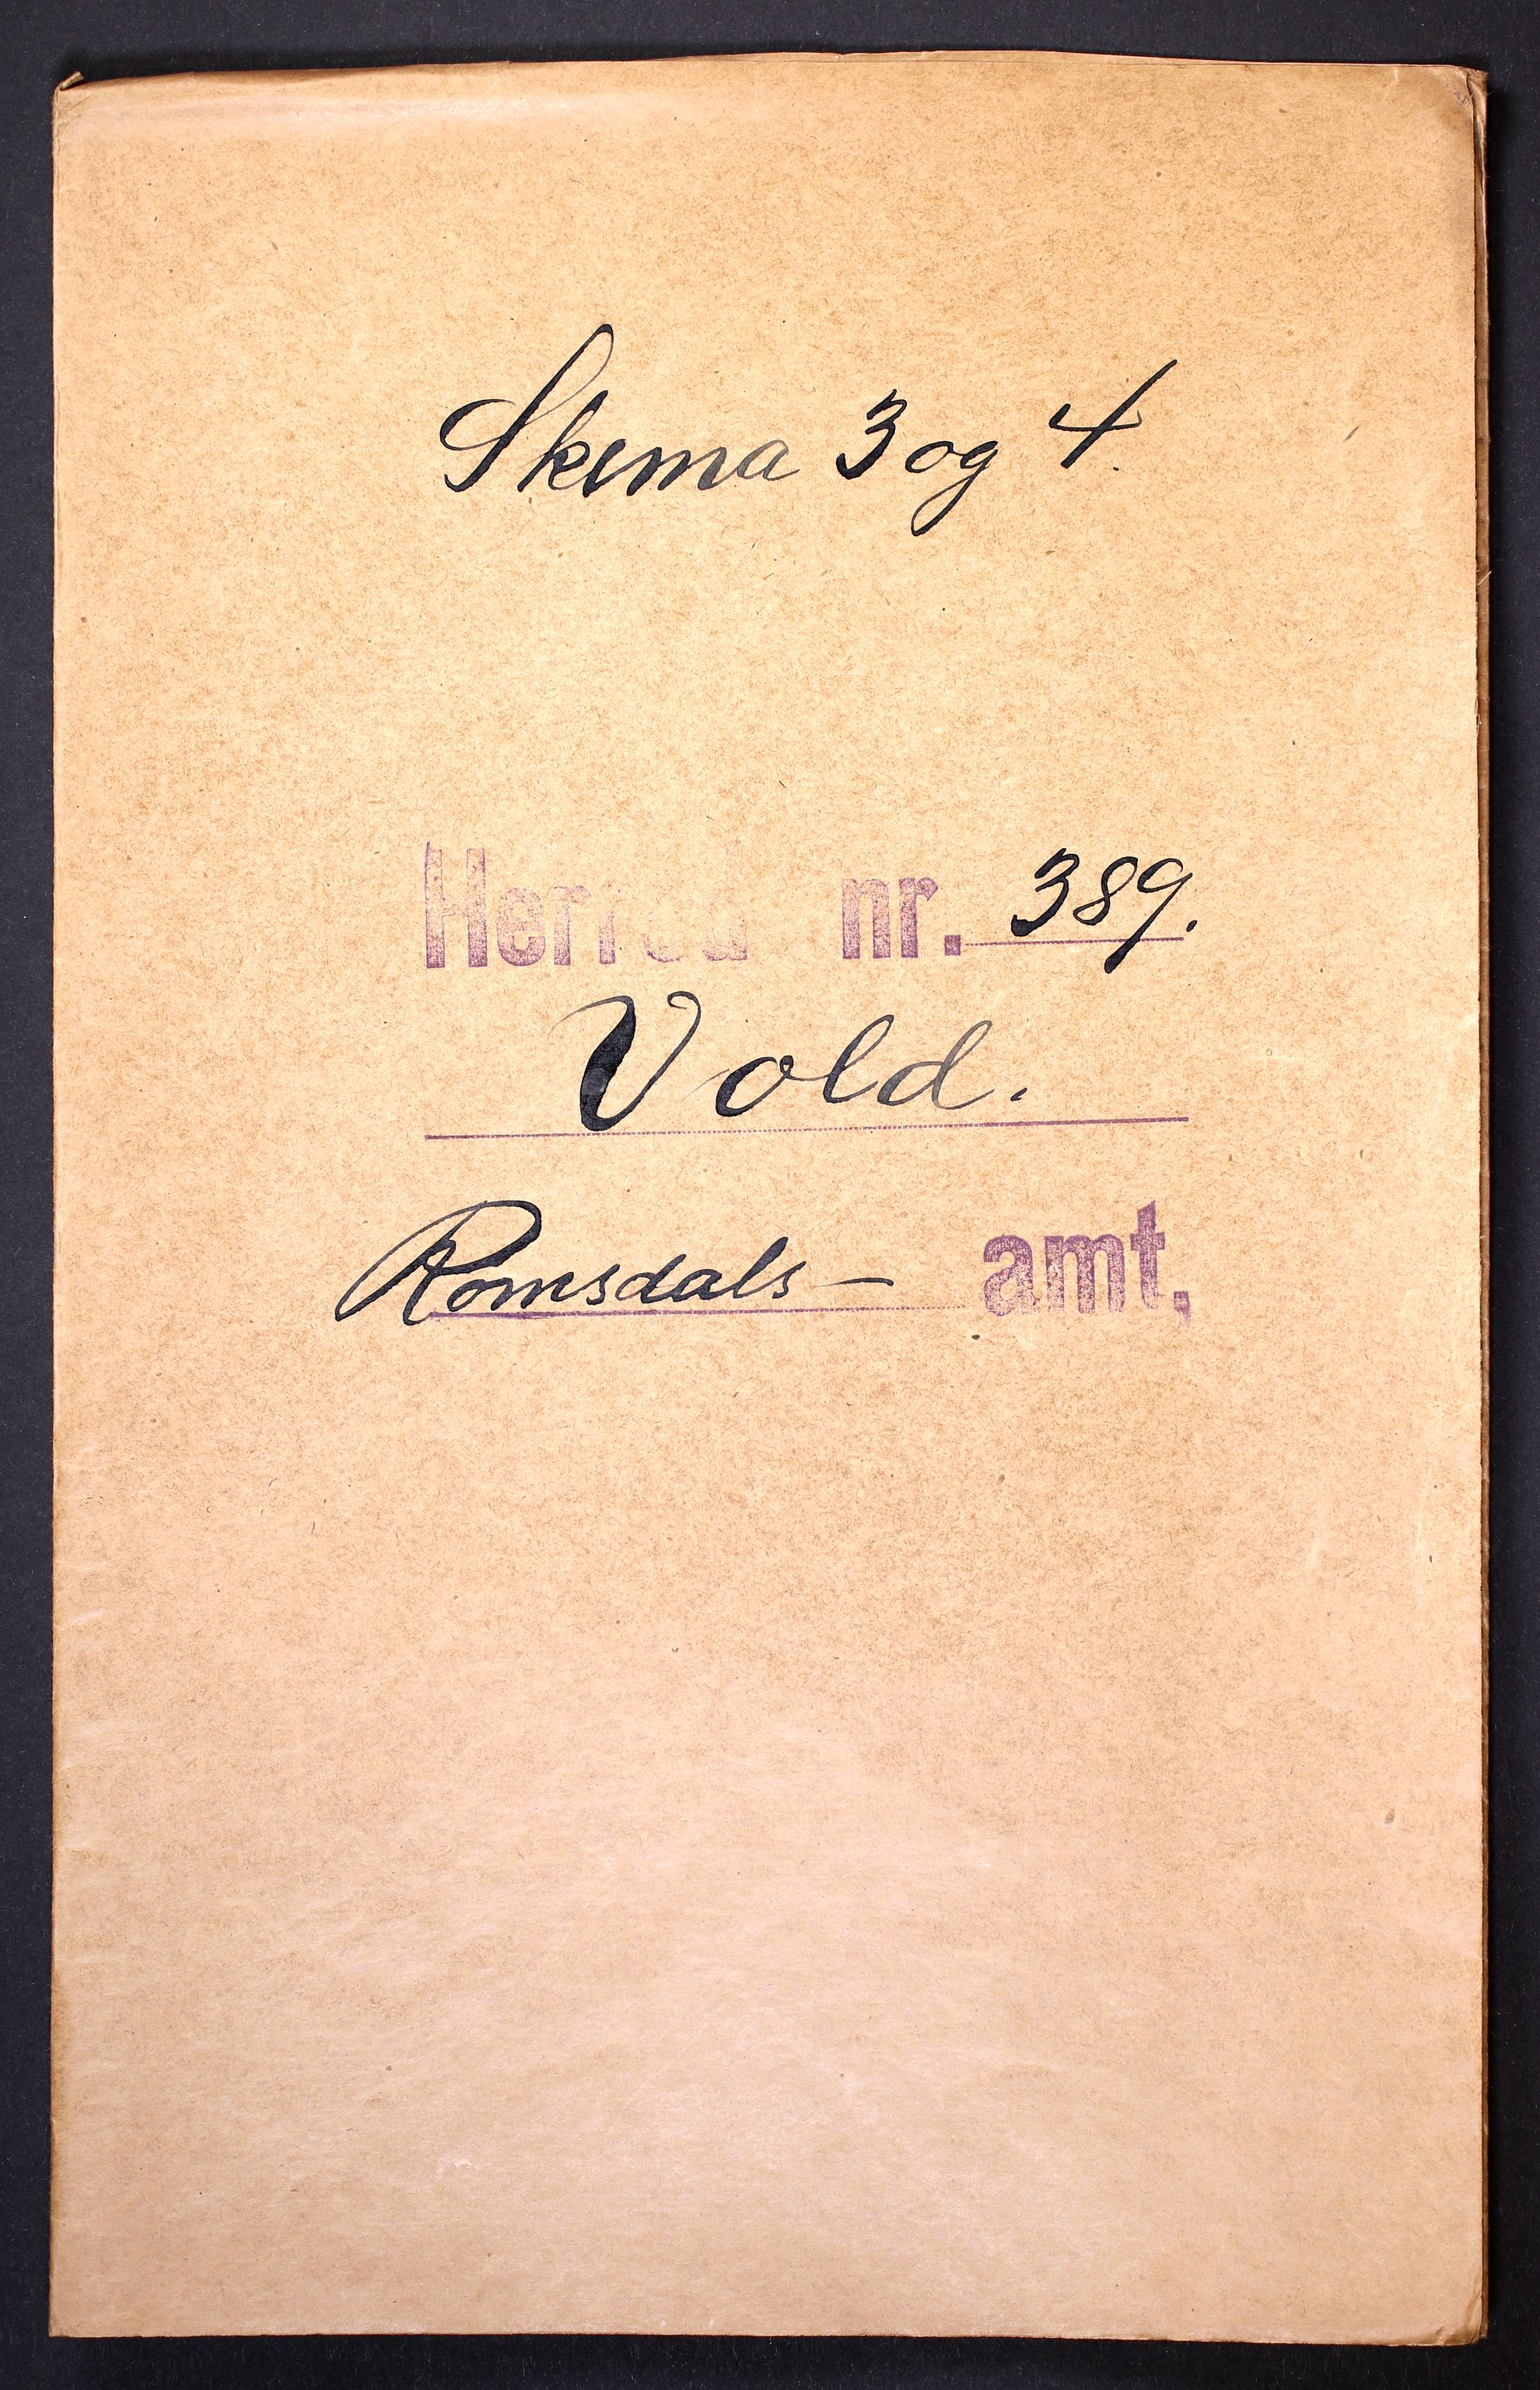 Skema 3 og 4.
Herred nr. 389.
Vold.
Romsdals - amt.